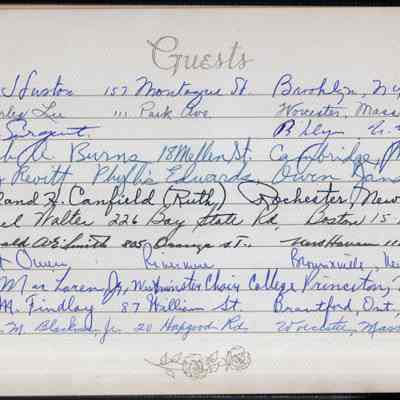 Guests
J Huston 157 Montague St. Brooklyn, Ny
Lee 111 Park Ave. Worcester, Mass
Sargent. B'lyn
Burns 18 Mellen St. Cambridge, M
Revitt Phyllis Edwards, Owen
land H. Canfield (Ruth), Rochester, New
el Walter 226 Bay State Rd. Boston 15
ald A. E. Smith 805 Orange St., New Haven 11
Owen Riverview Brownsville,
MacLaren, Jr., Westminster Choir College, Princeton,
M. Findlay 87 William St. Brantford, Ont.,
M. Jr. 20 Hapgood Rd. Worcester, Mass